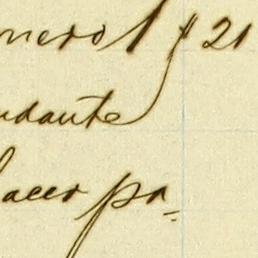 nero 1 y 21
udante
hacer pa=